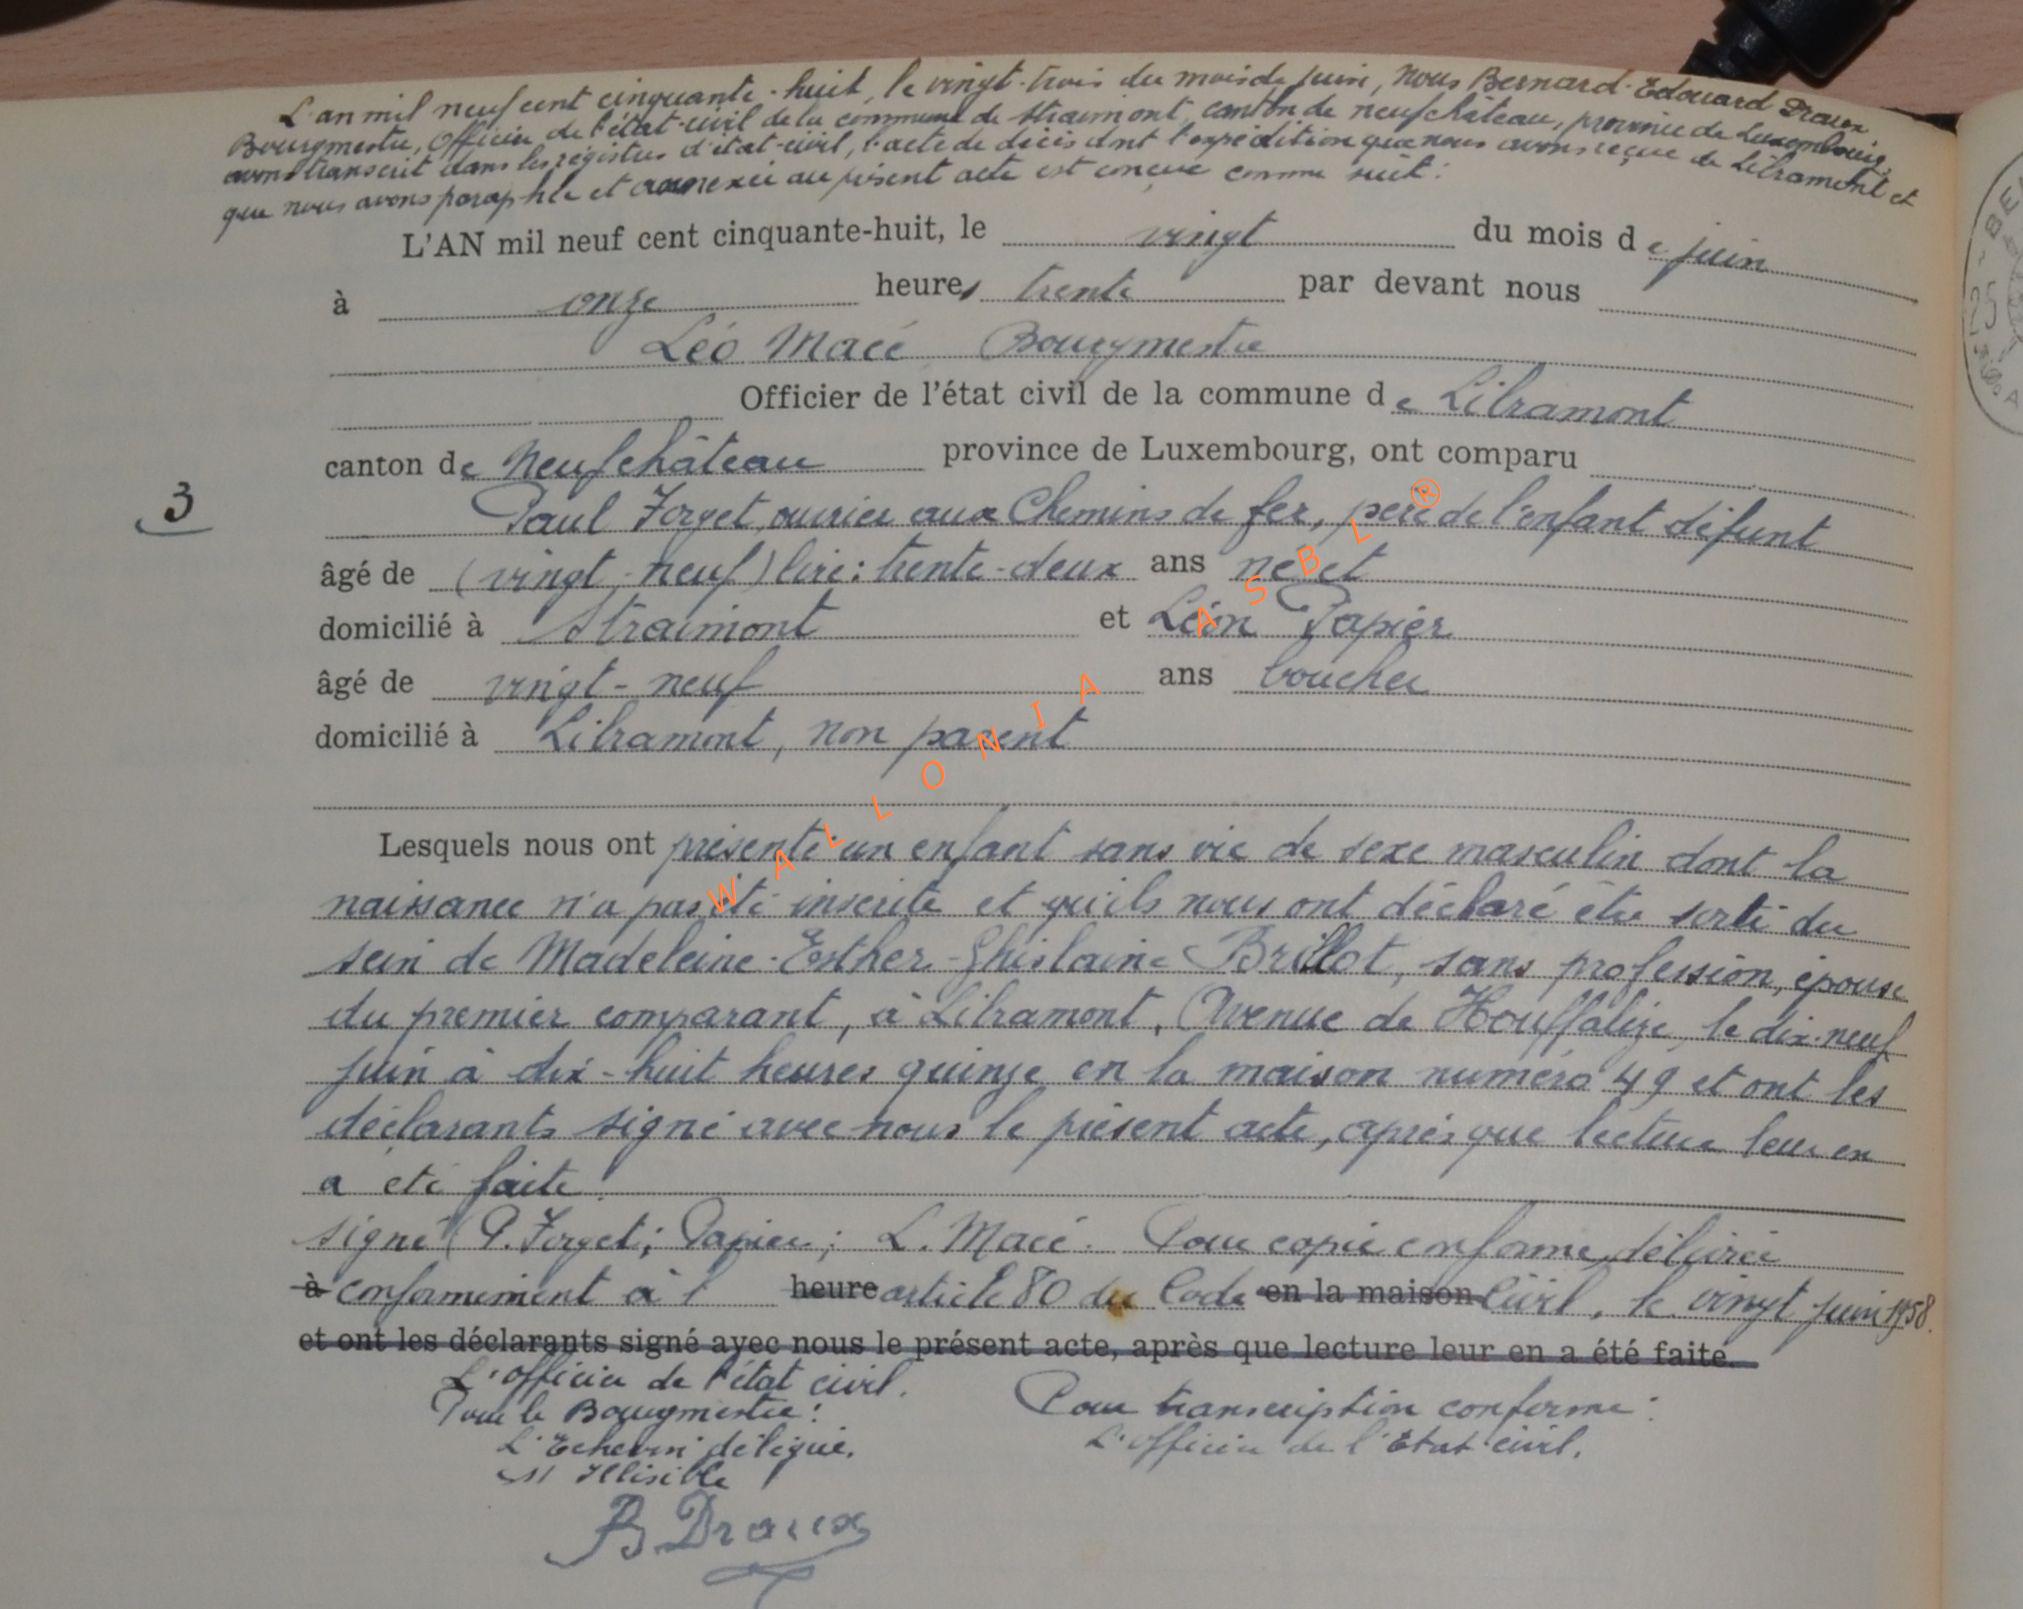 L'an mil neuf cent cinquante-huit, le vingt-trois du mois de juin, nous Bernard-Edouard Draux
Bourgmestre, Officier de l'état-civil de la commune de Straimont, canton de Neufchâteau, province de Luxembourg,
avons transcrit dans les registres d'état-civil, l'acte de décès dont l'expédition que nous avons reçue de Libramont et
que nous avons paraphée et annexée au présent acte est conçue comme suit :
L'AN mil neuf cent cinquante-huit, le vingt du mois de juin
à onze heures trente par devant nous
Léo Macé Bourgmestre
Officier de l'état civil de la commune de Libramont
canton de Neufchâteau province de Luxembourg, ont comparu
3
Paul Forget, ouvrier aux Chemins de fer, père de l'enfant défunt
âgé de (vingt-neuf) lire : trente-deux ans né et
domicilié à Straimont et Léon Papier
âgé de vingt-neuf ans boucher
domicilié à Libramont, non parent
Lesquels nous ont présenté un enfant sans vie de sexe masculin dont la
naissance n'a pas été inscrite et qu'ils nous ont déclaré être sorti du
sein de Madeleine-Esther-Ghislaine Brillot, sans profession, épouse
du premier comparant, à Libramont, Avenue de Houffalize, le dix-neuf
juin à dix-huit heures quinze en la maison numéro 49 et ont les
déclarants signé avec nous le présent acte, après que lecture leur en
a été faite.
signé (P. Forget; Papier; L. Macé. Pour copie conforme, délivrée
à conformément à l' heure article 80 du Code en la maison Civil, le vingt juin 1958.
et ont les déclarants signé avec nous le présent acte, après que lecture leur en a été faite.
L'officier de l'état civil.
Pour le Bourgmestre :
L'Echevin délégué,
s/ Illisible
Pour transcription conforme :
L'officier de l'Etat-civil.
B. Draux
WALLONIA ASBL ®